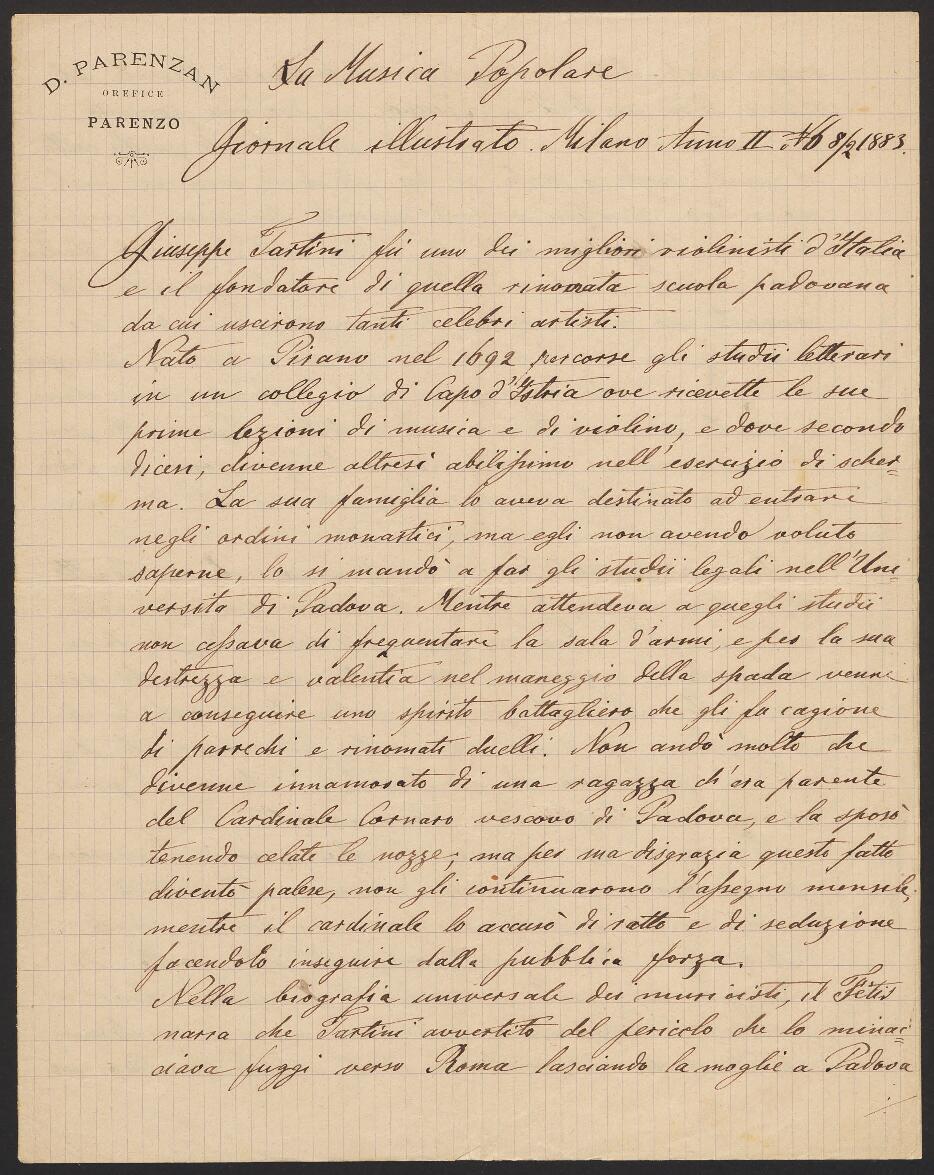 D. PARENZAN
OREFICE
PARENZO
La Musica Popolare
Giornale illustrato. Milano Anno II No 6 8/2 1883.
Giuseppe Tartini fu uno dei migliori violinisti d'Italia
e il fondatore di quella rinomata scuola padovana
da cui uscirono tanti celebri artisti.
Nato a Pirano nel 1692 percorse gli studii letterari
in un collegio di Capo d'Istria ove ricevette le sue
prime lezioni di musica e di violino, e dove secondo
dicesi, divenne altresì abilissimo nell'esercizio di scher=
ma. La sua famiglia lo aveva destinato ad entrare
negli ordini monastici, ma egli non avendo voluto
saperne, lo si mandò a far gli studii legali nell'Uni=
versità di Padova. Mentre attendeva a quegli studii
non cessava di frequentare la sala d'armi, e per la sua
destrezza e valentia nel maneggio della spada venne
a conseguire uno spirito battagliero che gli fu cagione
di parrechi e rinomati duelli. Non andò molto che
divenne innamorato di una ragazza ch'era parente
del Cardinale Cornaro vescovo di Padova, e la sposò
tenendo celate le nozze; ma per ma disgrazia questo fatto
diventò palese, non gli continuarono l'assegno mensile,
mentre il cardinale lo accusò di ratto e di seduzione
facendolo inseguire dalla pubblica forza.
Nella biografia universale dei musicisti, il Fétis
narra che Tartini avvertito del pericolo che lo minac=
ciava fuggì verso Roma lasciando la moglie a Padova